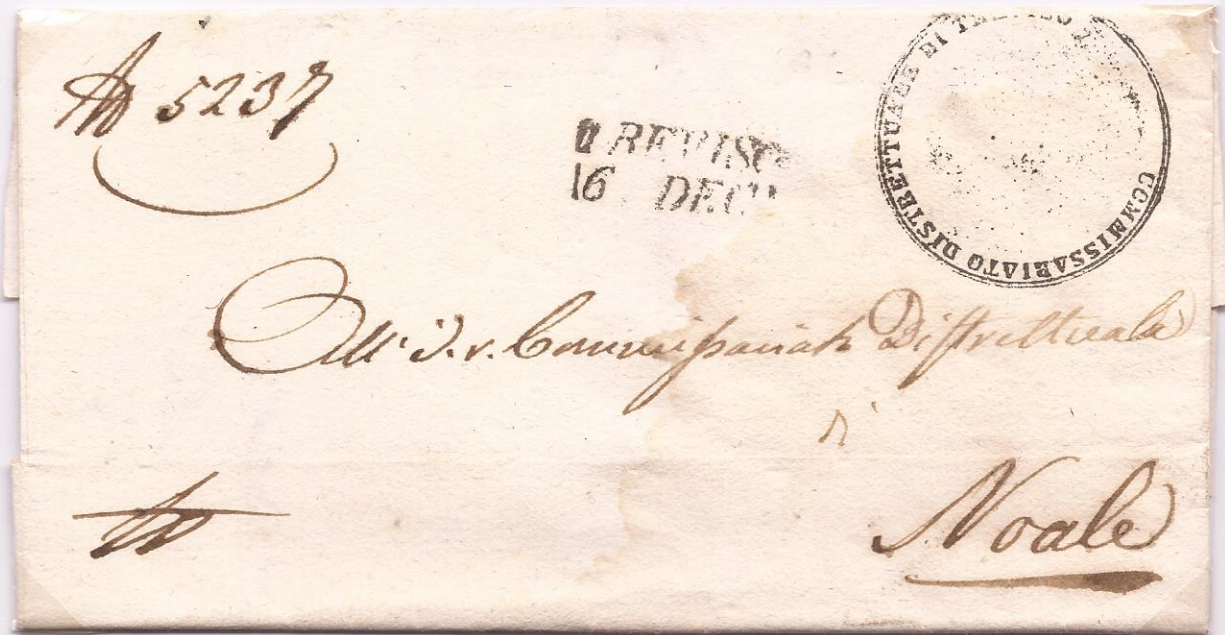 5237
TREVISO
16 DEC
COMMISSARIATO DISTRETTUALE DI TREVISO
All' I. r. Commissariato Distrettuale
di
Noale